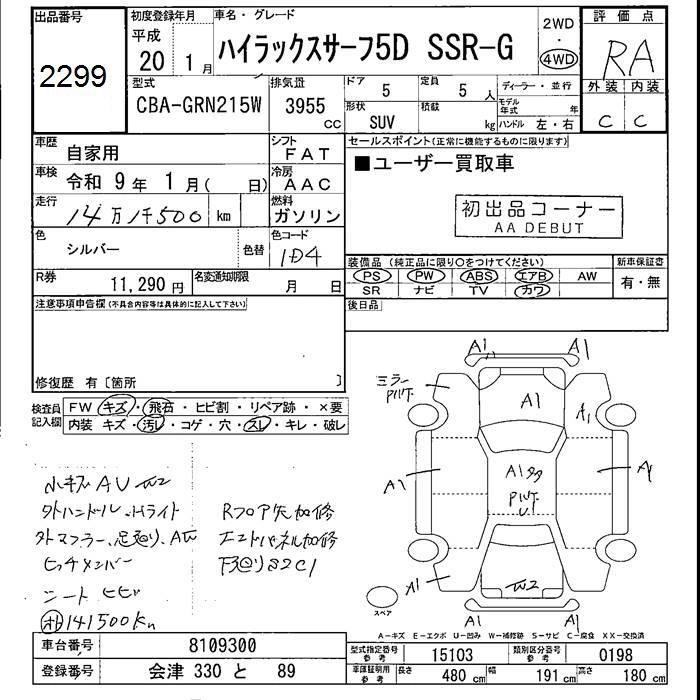 出品番号
2299
初度登録年月
平成
20 1月
車名・グレード
ハイラックスサーフ5D SSR-G
2WD
・
4WD
評価点
RA
外装 内装
C C
型式
CBA-GRN215W
排気量
3955
cc
ドア
5
定員
5 人
形状
SUV
積載
kg
ディーラー・並行
モデル年式 年
ハンドル 左・右
車歴
自家用
シフト
FAT
車検
令和 9年 1月( 日)
冷房
AAC
走行
14万1千500 km
燃料
ガソリン
色
シルバー
色替
色コード
1D4
R券
11,290 円
名変通知期限
月 日
セールスポイント(正常に機能するものに限ります)
■ユーザー買取車
初出品コーナー
AA DEBUT
装備品(純正品に限り○をつけてください)
PS PW ABS エアB AW
SR ナビ TV カワ
新車保証書
有・無
後日品
注意事項申告欄(不具合内容等は具体的に記入して下さい)
修復歴 有〔箇所 〕
検査員記入欄
FW キズ・飛石・ヒビ割・リペア跡・×要
内装 キズ・汚レ・コゲ・穴・スレ・キレ・破レ
小キズ AU W2
外ハンドル、Hライト
外マフラー、足廻り、AW
ヒッチメンバー
シート ヒビ
141500Km
Rフロア先加修
エンドパネル加修
下廻りS2C1
A1 A1
ミラー
A1
A1
A1
A1
A1
A1
W2
A1 A1
スペア
A-キズ E-エクボ U-凹み W-補修跡 S-サビ C-腐食 XX-交換済
車台番号
8109300
登録番号
会津 330 と 89
型式指定番号
参考
15103
類別区分番号
参考
0198
車庫証明用
参考
長さ
480 cm
幅
191 cm
高さ
180 cm